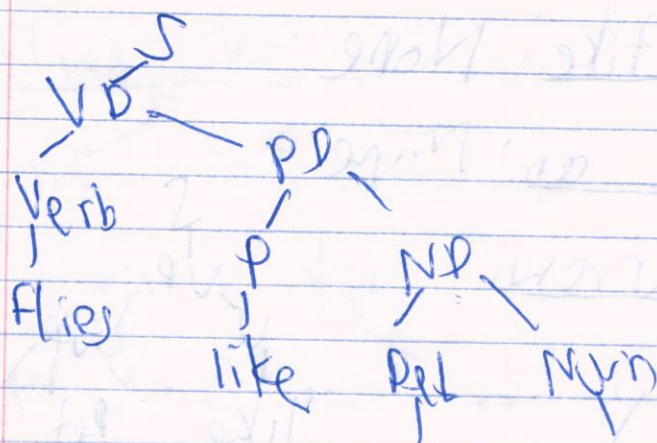 S
VP
PP
Verb
P
NP
Flies
like
Det
Noun